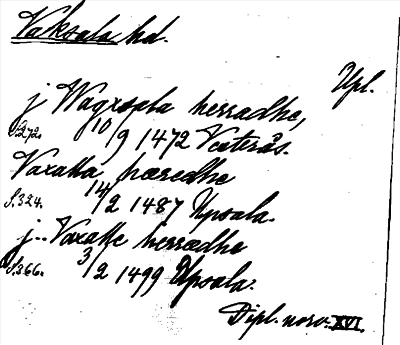 Vaksala hd.
Upl.
j Wagxsala herradhe,
S. 272. 10/9 1472 Västerås.
Vaxalla hæredhe
S. 324. 14/2 1487 Upsala.
j.. Vaxalle herædhe
S. 366. 3/2 1499 Upsala.
Dipl. norv. XVI.